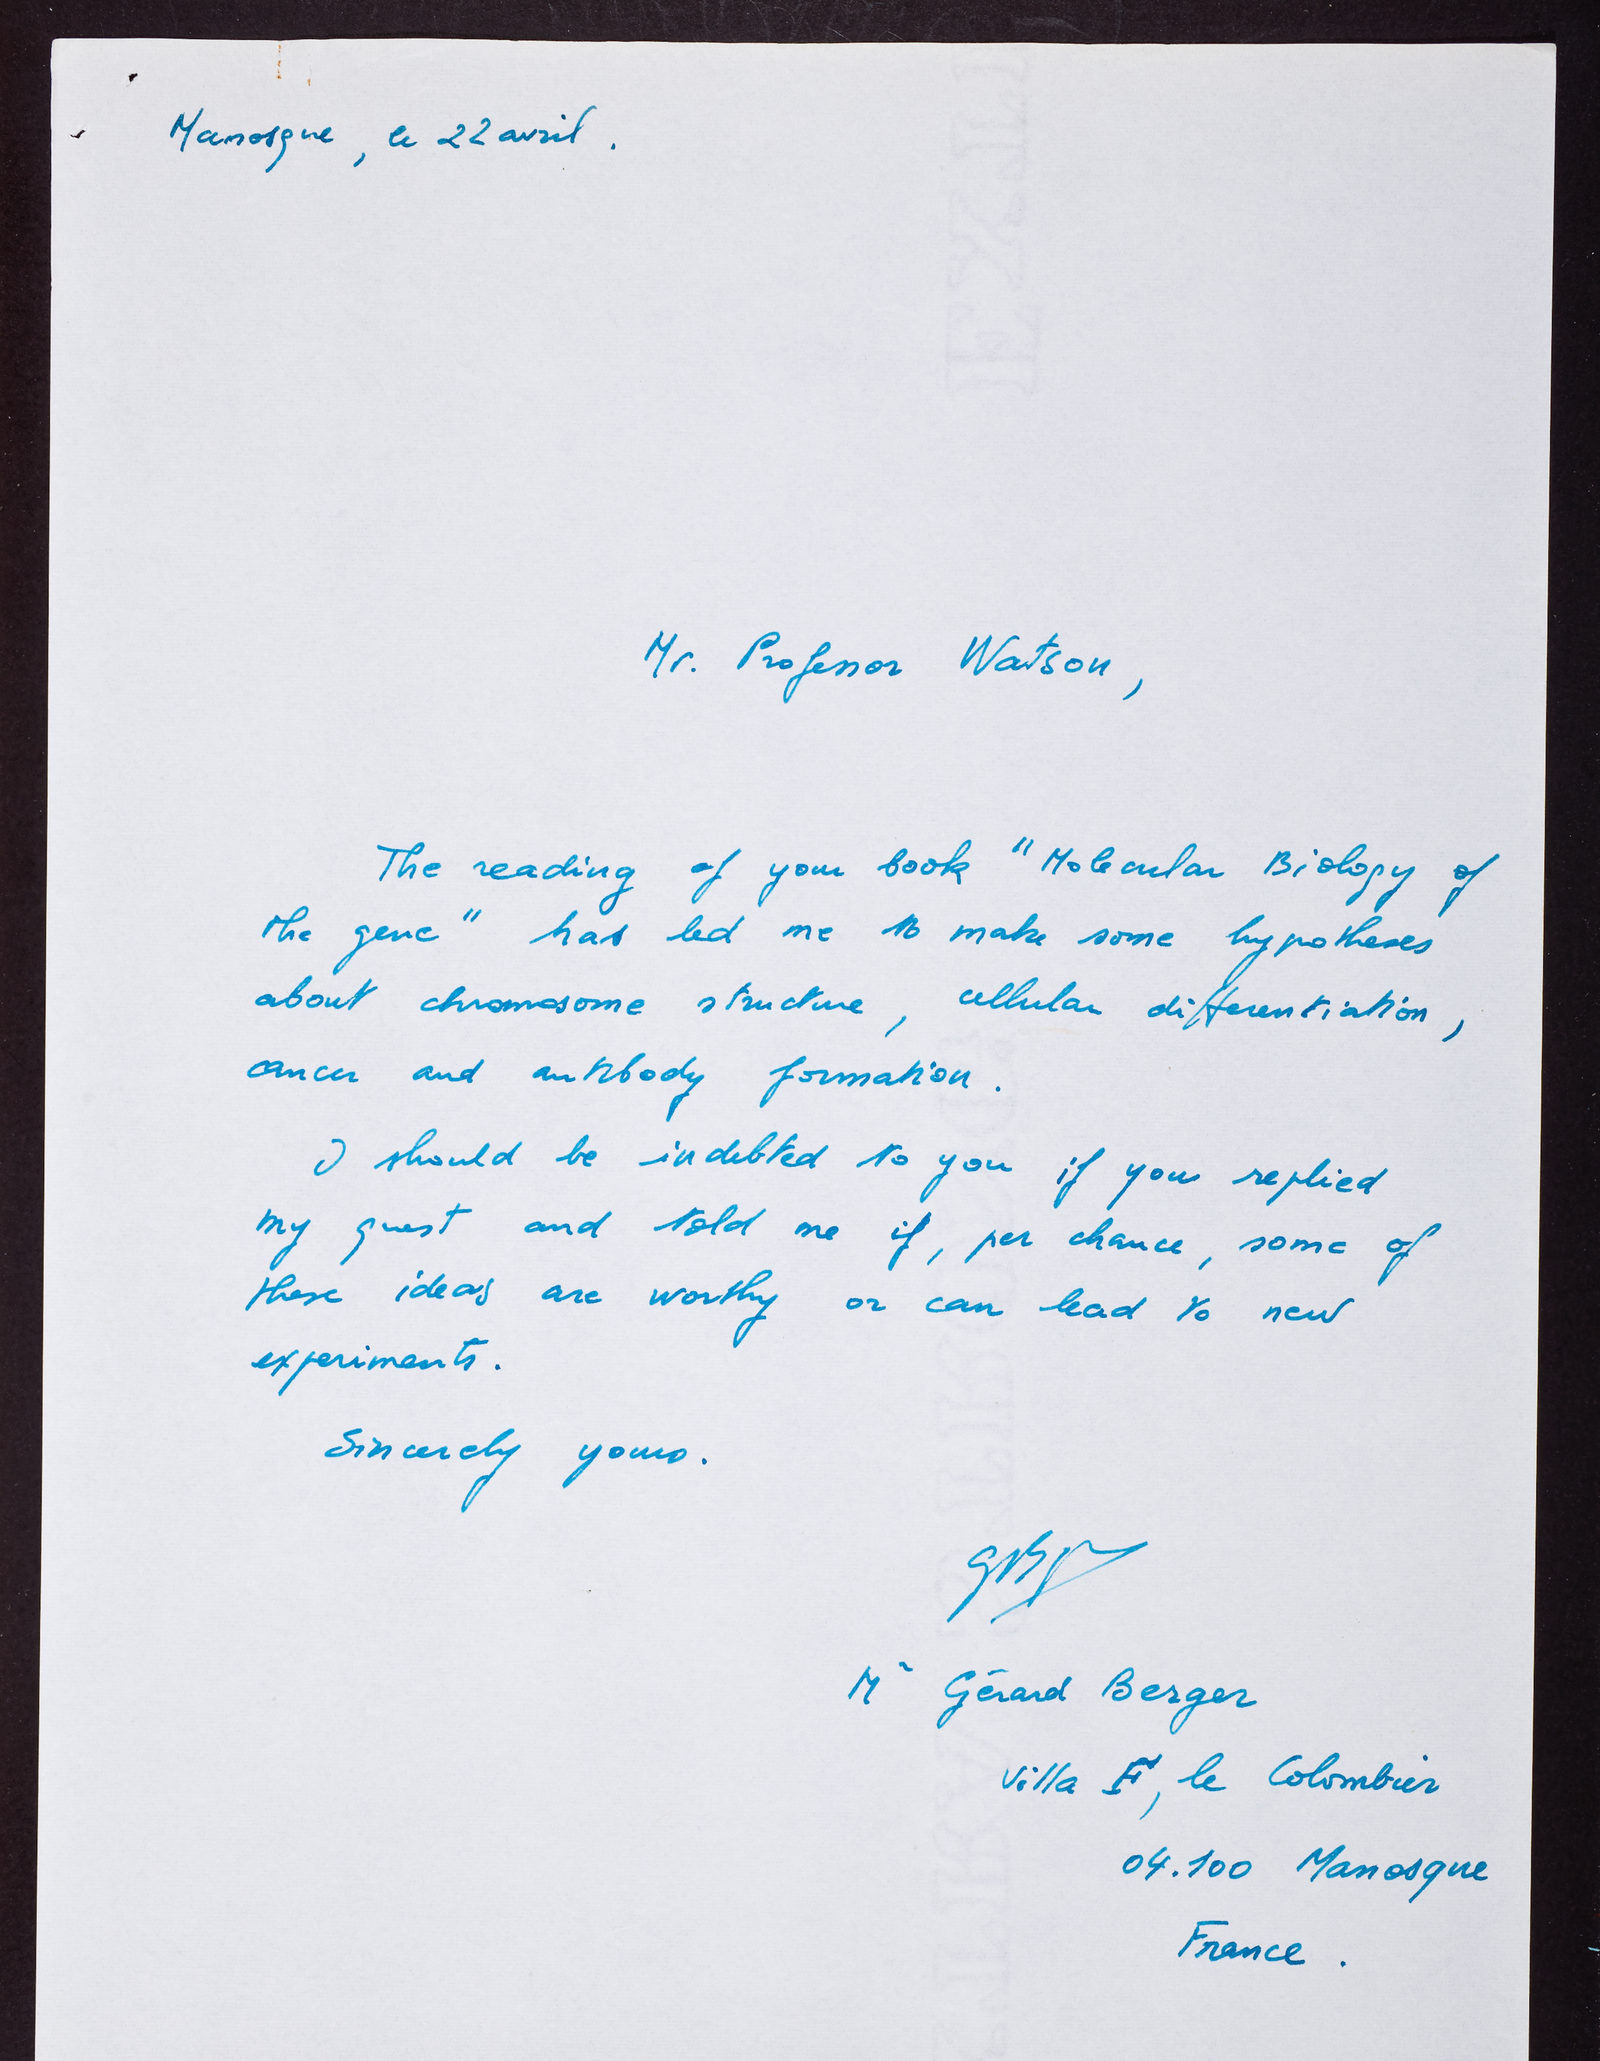 Manosque, le 22 avril.
Mr. Professor Watson,
The reading of your book "Molecular Biology of
the gene" has led me to make some hypotheses
about chromosome structure, cellular differentiation,
cancer and antibody formation.
I should be indebted to you if you replied
my quest and told me if, per chance, some of
these ideas are worthy or can lead to new
experiments.
Sincerely yours.
Mr Gérard Berger
Villa F, le Colombier
04.100 Manosque
France.